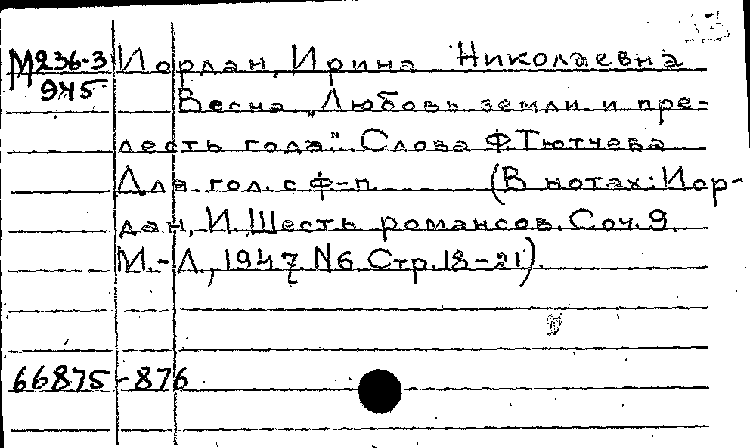 М236-3 Иордан, Ирина Николаевна
945 Весна „Любовь земли и пре-
лесть года". Слова Ф. Тютчева
Для гол. с ф-п. (В нотах: Иор-
дан, И. Шесть романсов. Соч. 9.
М.-Л., 1947. N6. Стр. 18-21).
66875-876